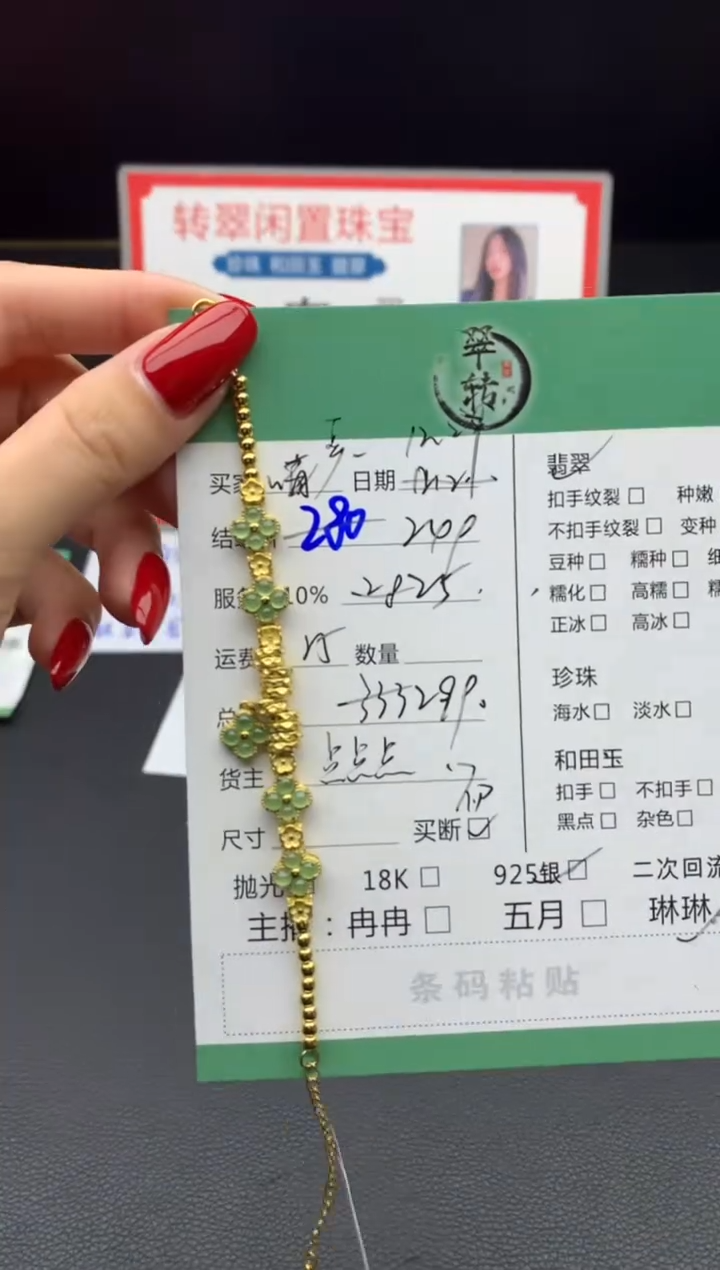 转翠闲置珠宝
珍珠 和田玉 翡翠
翠转
买家 晴 日期
结 280 200
服 10% 2825.
运费 15 数量
总
货主 点点点
尺寸 买断
抛光 18K 925银 二次回流
主播：冉冉 五月 琳琳
条码粘贴
翡翠
扣手纹裂 种嫩
不扣手纹裂 变种
豆种 糯种 细
糯化 高糯 糯
正冰 高冰
珍珠
海水 淡水
和田玉
扣手 不扣手
黑点 杂色